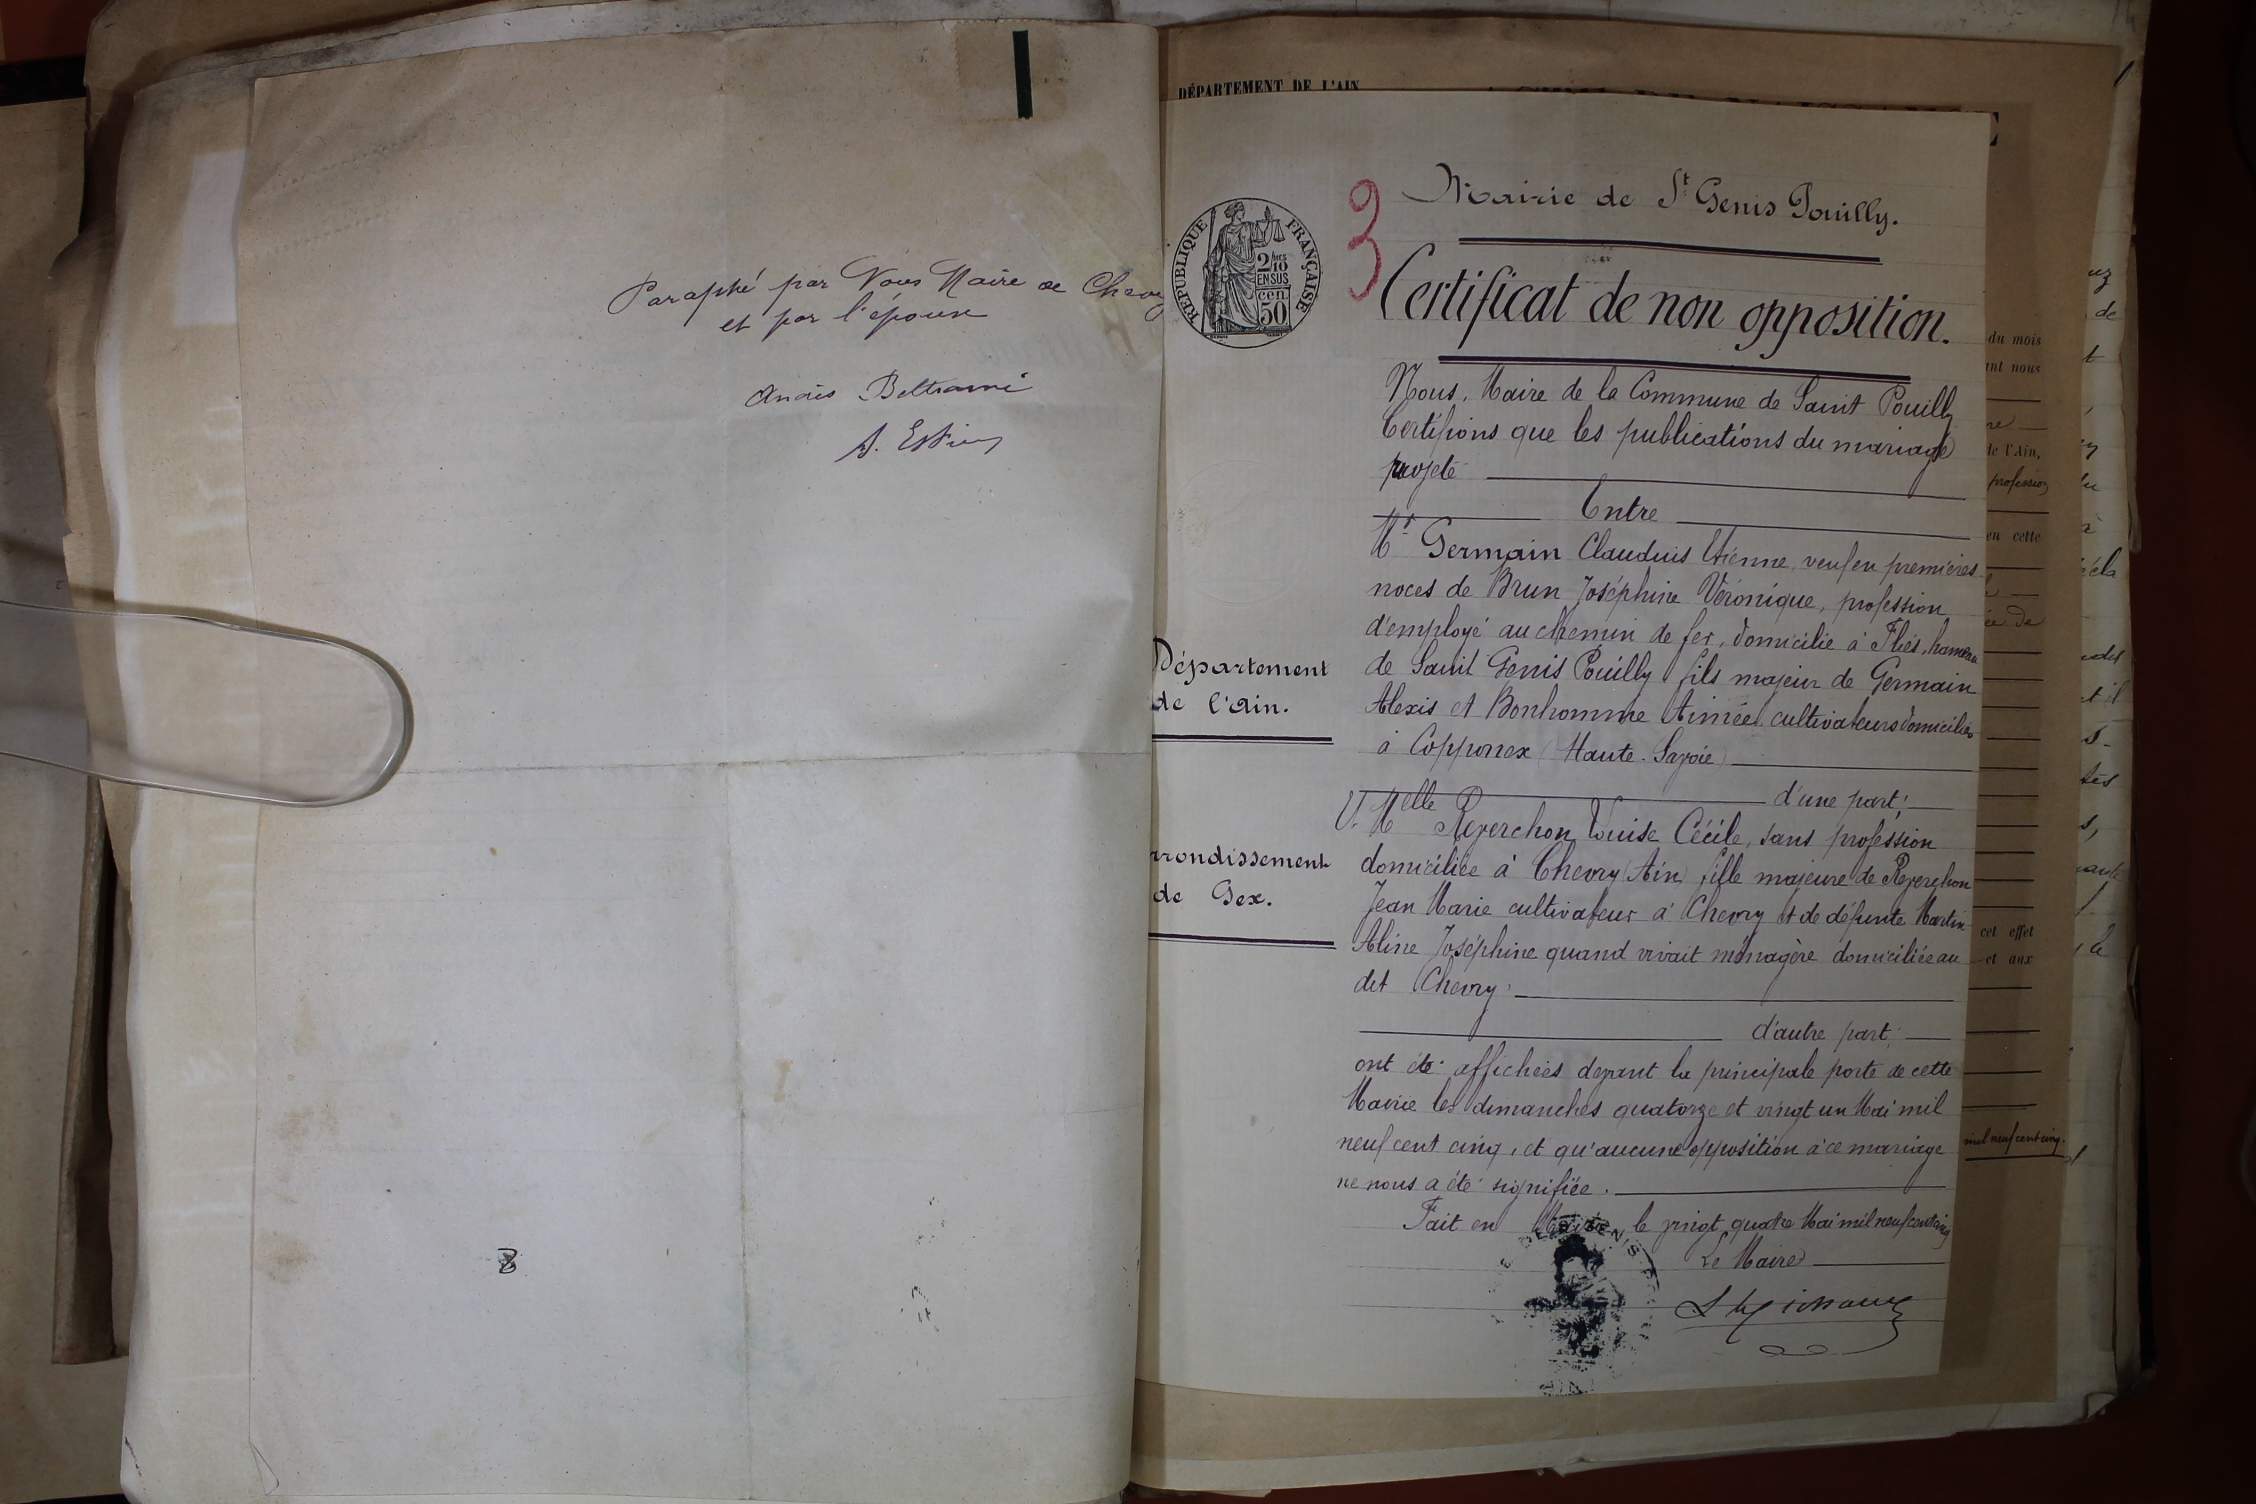 Paraphé par Nous Maire de Chevry
et par l'époux
Anaïs Beltrami
DÉPARTEMENT DE L'AIN
RÉPUBLIQUE FRANÇAISE
2/10
EN SUS
50 cen
3
Mairie de St Genis Pouilly.
Certificat de non opposition.
Nous, Maire de la Commune de Saint Pouilly
Certifions que les publications du mariage
projeté
Entre
Mr Germain Claudius Etienne, veuf en premières
noces de Brun Joséphine Véronique, profession
d'employé au chemin de fer, domicilié à Flies, hameau
de Saint Genis Pouilly fils majeur de Germain
Alexis et Bonhomme Aimée cultivateurs domiciliés
à Copponex (Haute-Savoie)
d'une part;
Melle Reverchon Louise Cécile, sans profession
domiciliée à Chevry (Ain) fille majeure de Reverchon
Jean Marie cultivateur à Chevry et de défunte Martin
Aline Joséphine quand vivait ménagère domiciliée au
dit Chevry;
d'autre part;
ont été affichées devant la principale porte de cette
Mairie les dimanches quatorze et vingt un Mai mil
neuf cent cinq, et qu'aucune opposition à ce mariage
ne nous a été signifiée.
Fait en Mairie le vingt quatre Mai mil neuf cent cinq
Le Maire
Département
de l'Ain.
rrondissement
de Gex.
du mois
ant nous
de l'Ain,
profession
en cette
cet effet
et aux
mil neuf cent cinq.